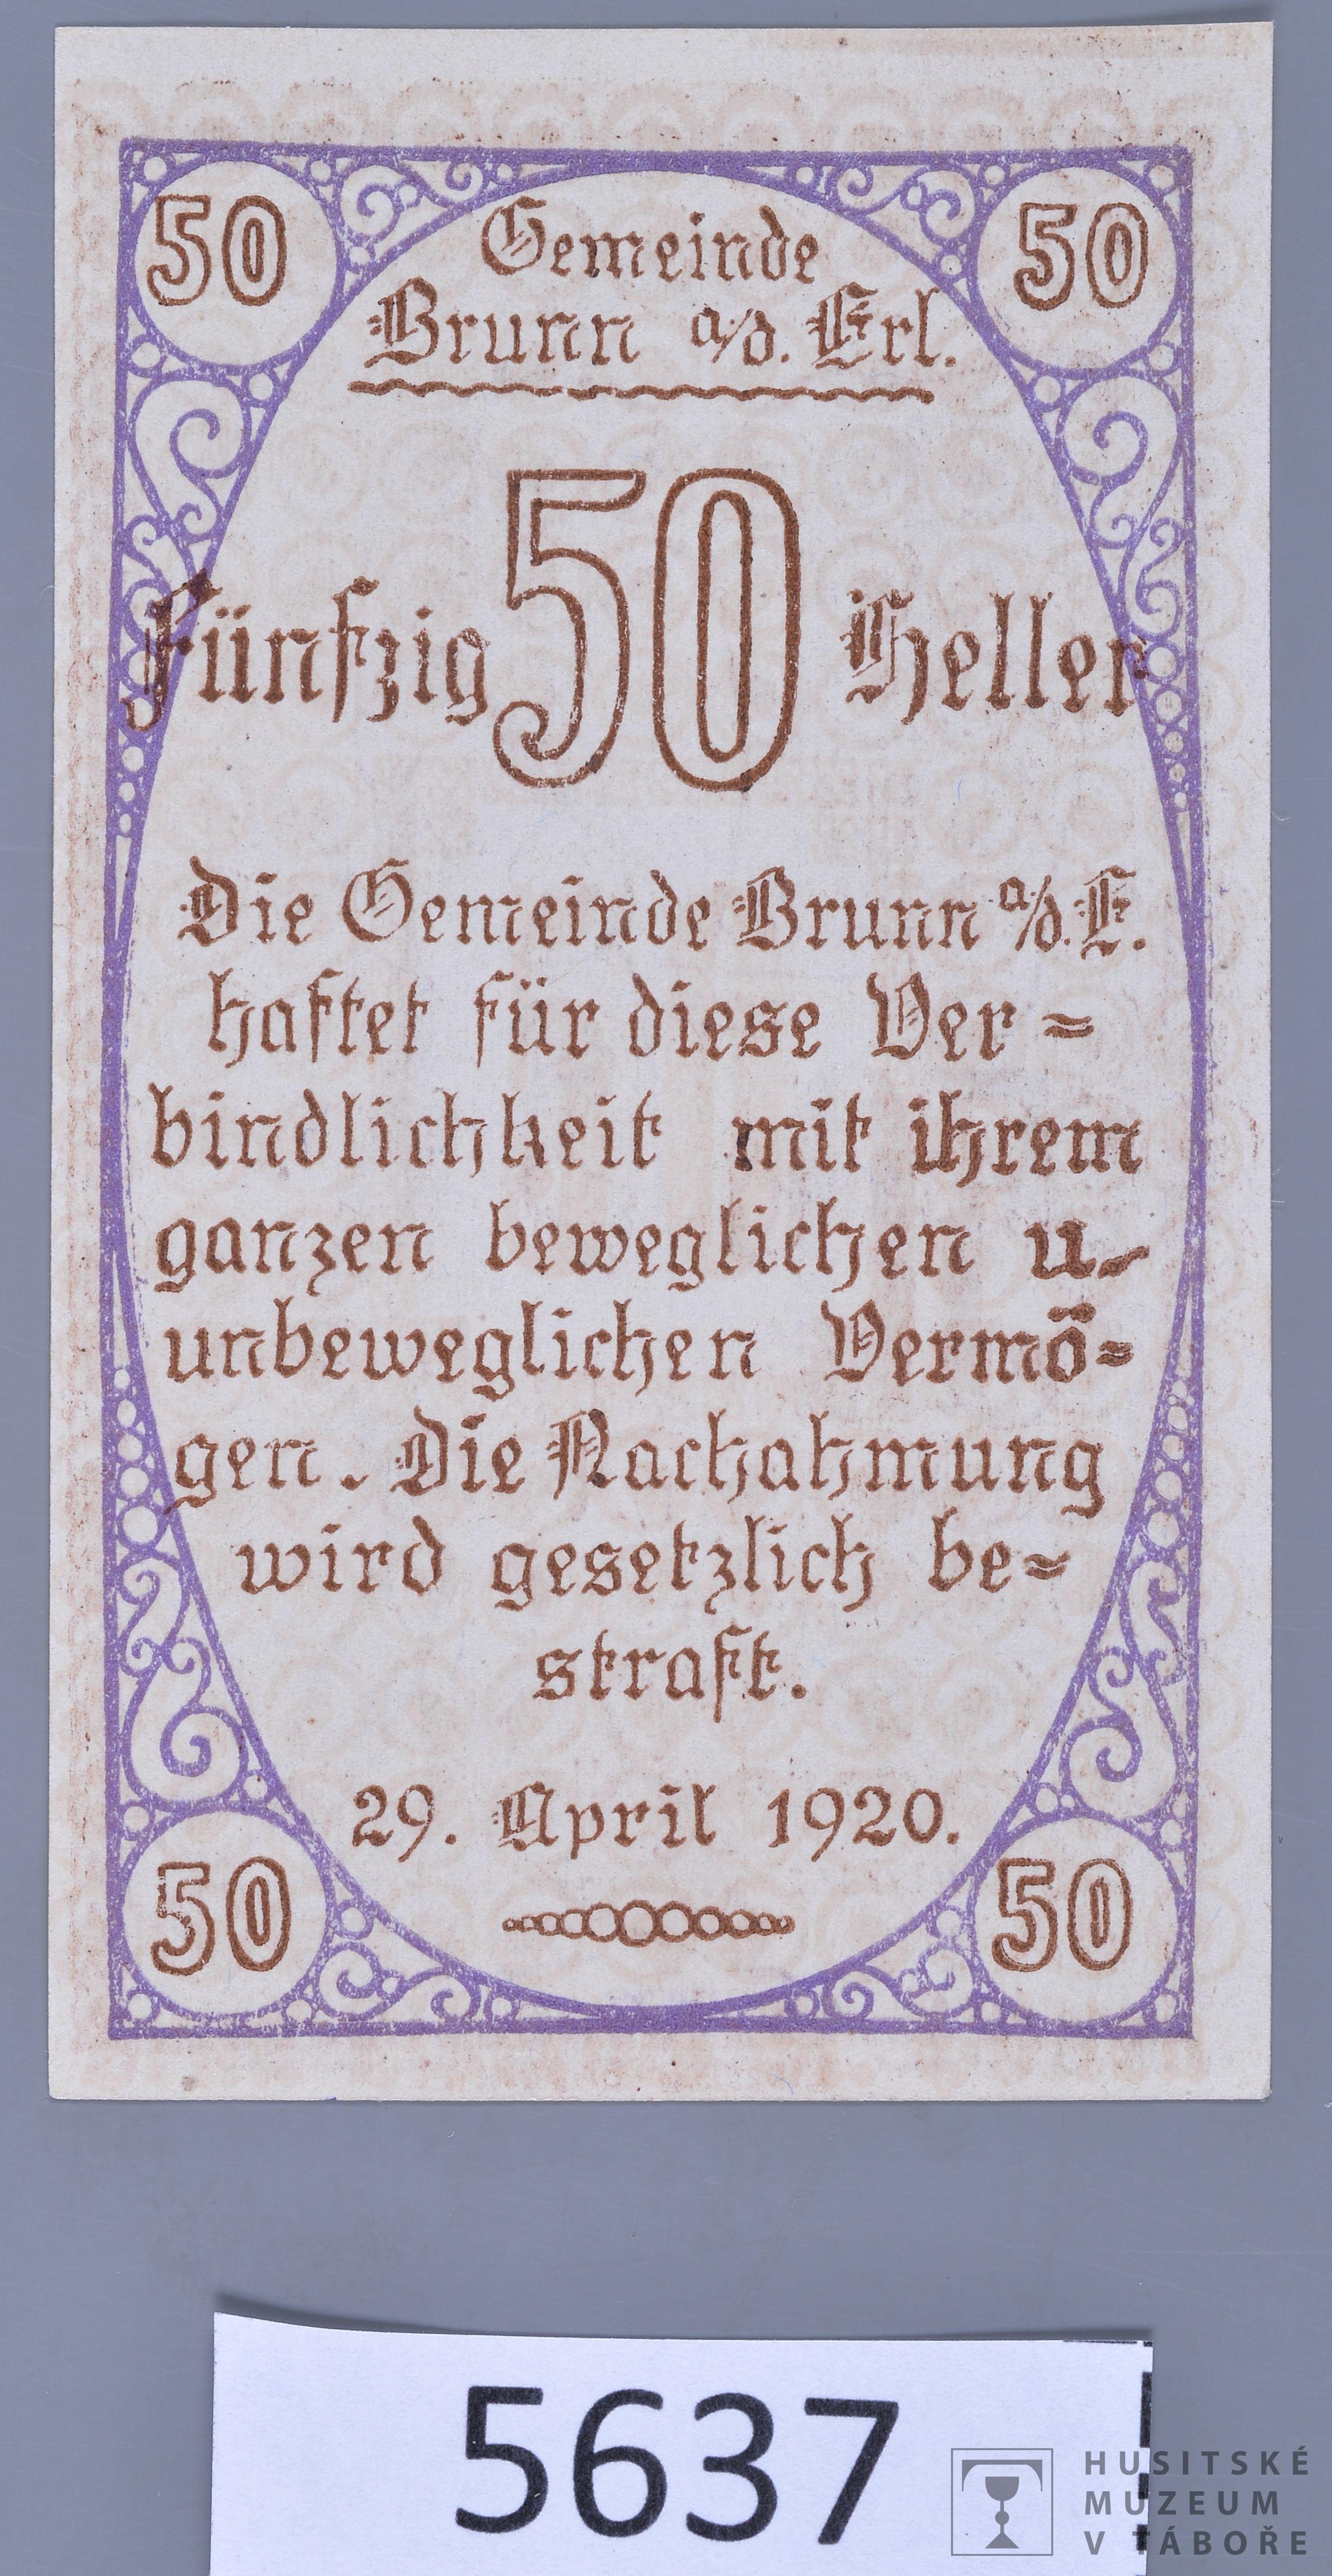 50 Gemeinde 50
Brunn a/d. Erl.
Fünfzig 50 Heller
Die Gemeinde Brunn a/d. E.
haftet für diese Ver=
bindlichkeit mit ihrem
ganzen beweglichen u.
unbeweglichen Vermö=
gen. Die Nachahmung
wird gesetzlich be=
straft.
29. April 1920.
50 50
5637
HUSITSKÉ
MUZEUM
V TÁBOŘE